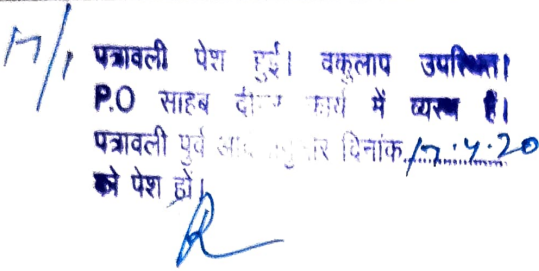 17/1
पत्रावली पेश हुई। वकुलाप उपस्थित।
P.O साहब कार्य में व्यस्थ हैं।
पत्रावली पुर्व दिनांक 17.4.20
को पेश हो।